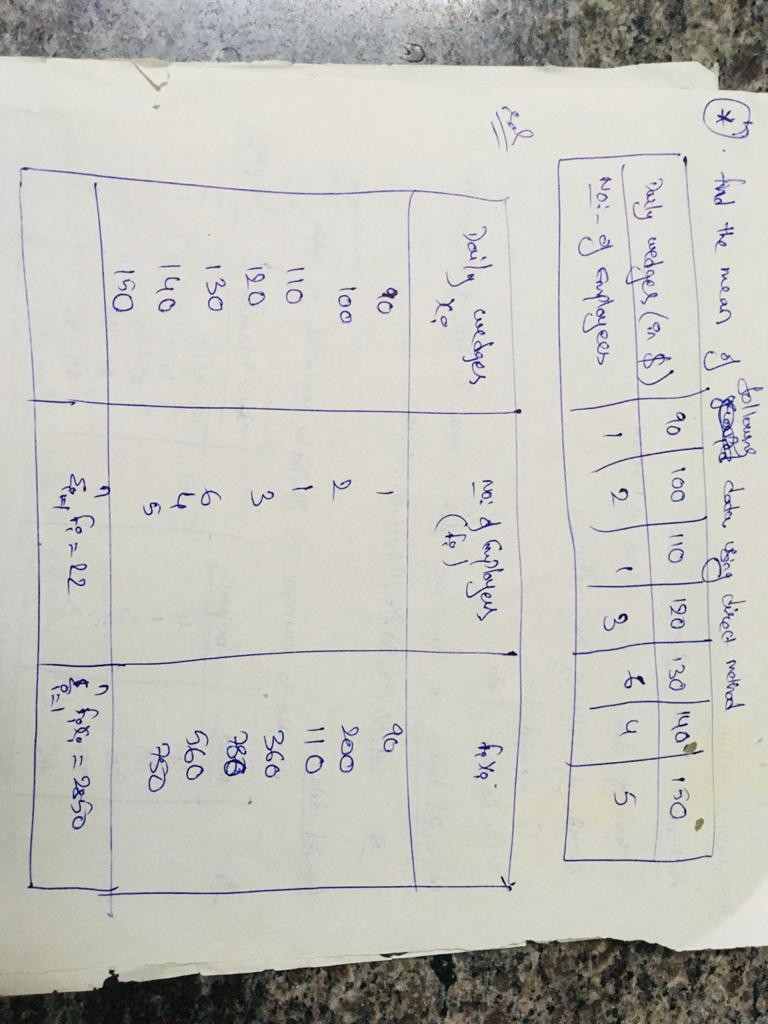 * . find the mean of following data using direct method
Daily wedges (in $) 90 100 110 120 130 140 150
No:- of Employees 1 2 1 3 6 4 5
Sol
Daily wedges xi No: of Employers (fi) fixi
90 1 90
100 2 200
110 1 110
120 3 360
130 6 780
140 4 560
150 5 750
n Σ i=1 fi = 22 n Σ i=1 fixi = 2850